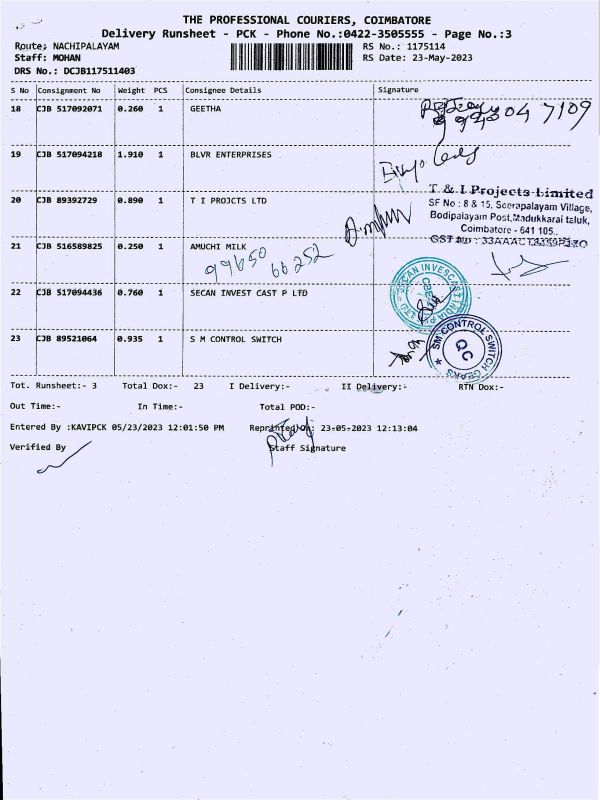 THE PROFESSIONAL COURIERS, COIMBATORE
Delivery Runsheet - PCK - Phone No.:0422-3505555 - Page No.:3
Route: NACHIPALAYAM RS No.: 1175114
Staff: MOHAN RS Date: 23-May-2023
DRS No.: DCJB117511403
S No Consignment No Weight PCS Consignee Details Signature
18 CJB 517092071 0.260 1 GEETHA
7109
19 CJB 517094218 1.910 1 BLVR ENTERPRISES
20 CJB 89392729 0.890 1 T I PROJCTS LTD
T & I Projects Limited
SF No : 8 & 15, Seerapalayam Village,
Bodipalayam Post, Madukkarai taluk,
Coimbatore - 641 105.
21 CJB 516589825 0.250 1 AMUCHI MILK
99650 66252
22 CJB 517094436 0.760 1 SECAN INVEST CAST P LTD
SECAN INVESCAST INDIA P LTD
23 CJB 89521064 0.935 1 S M CONTROL SWITCH
SM CONTROL SWITCH GEARS
QC
Tot. Runsheet:- 3 Total Dox:- 23 I Delivery:- II Delivery:- RTN Dox:-
Out Time:- In Time:- Total POD:-
Entered By :KAVIPCK 05/23/2023 12:01:50 PM Reprinted On: 23-05-2023 12:13:04
Verified By Staff Signature